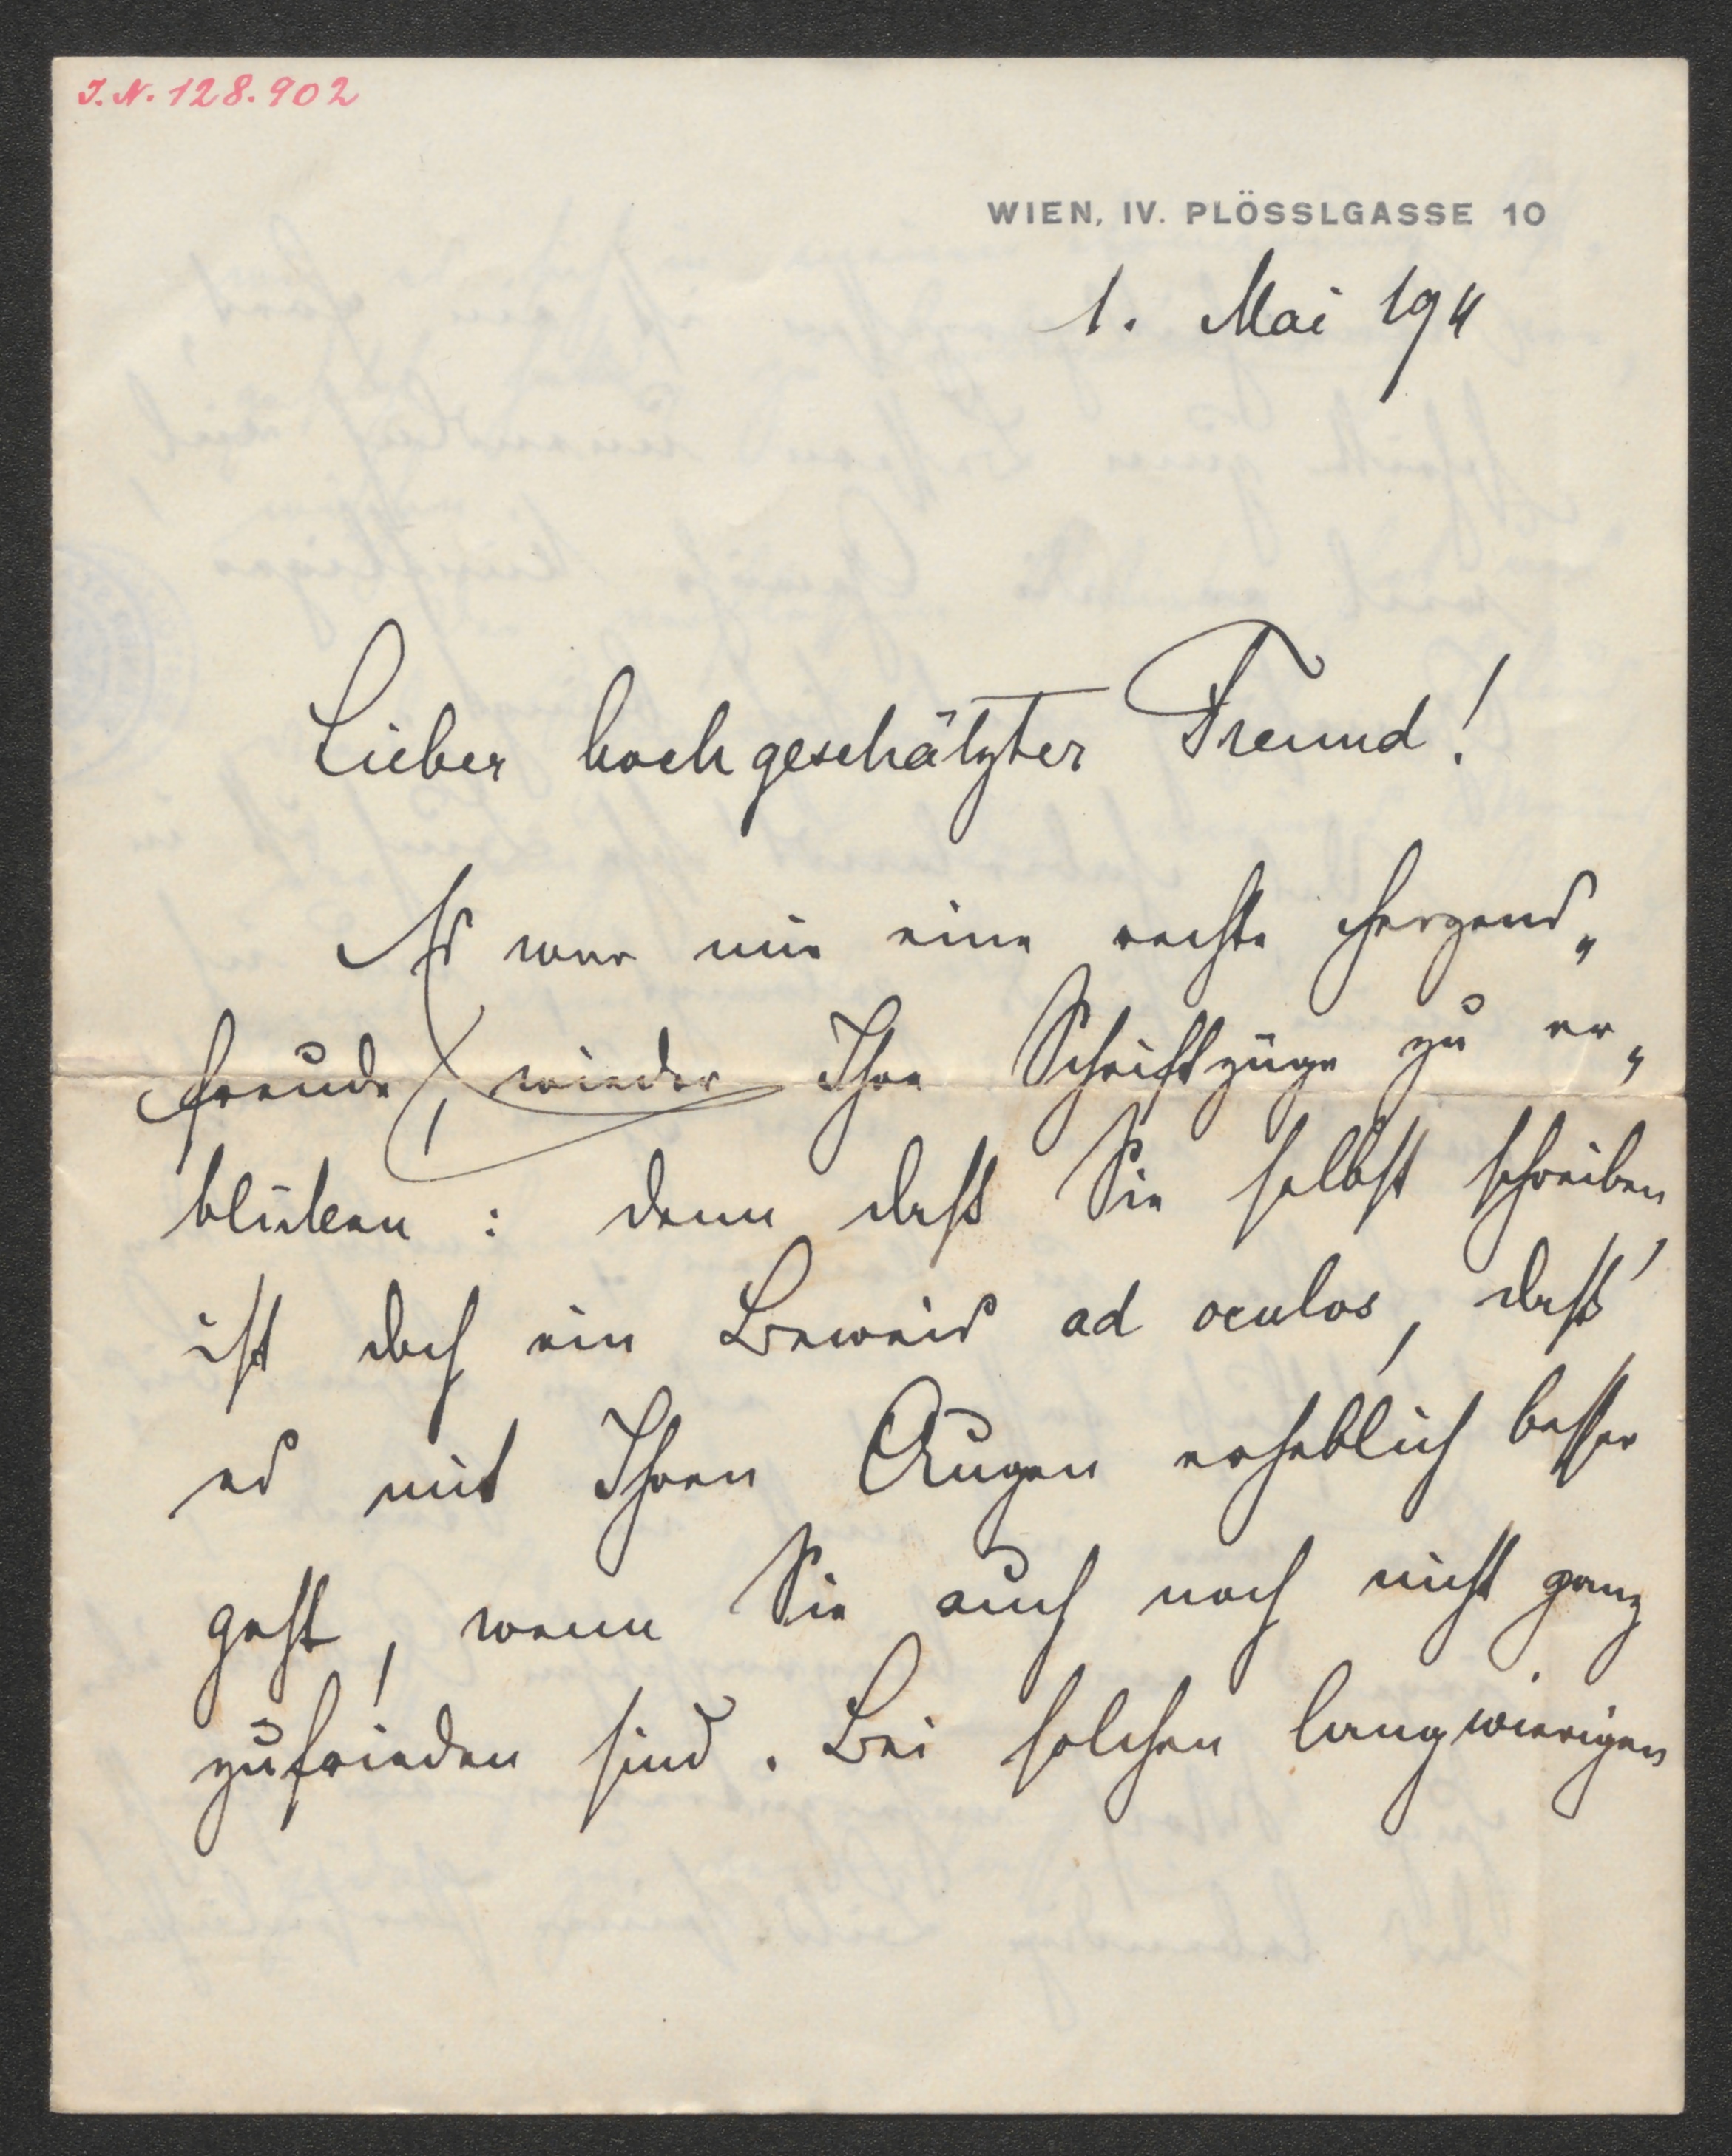 I.N. 128.902
WIEN, IV. PLÖSSLGASSE 10
1. Mai 1911
Lieber hochgeschätzter Freund!
Es war mir eine rechte Herzens„
freude, wieder Ihre Schriftzüge zu er„
blicken : denn daß Sie selbst schreiben,
ist doch ein Beweis ad oculos, daß
es mit Ihren Augen erheblich besser
geht, wenn Sie auch noch nicht ganz
zufrieden sind. Bei solchen langwierigen